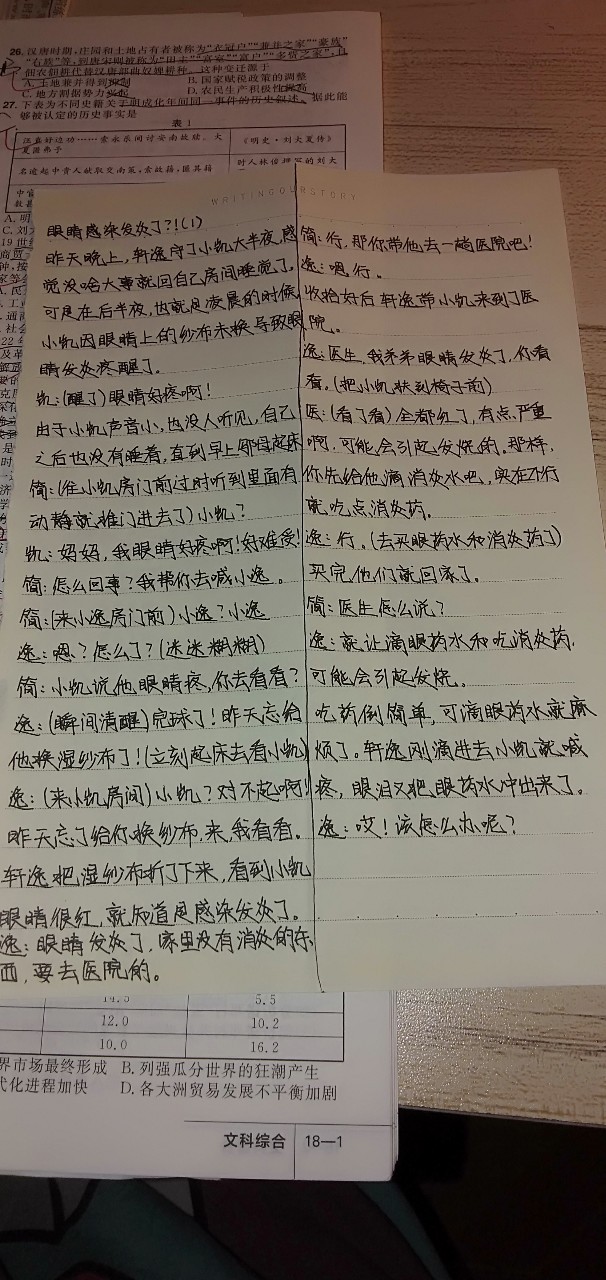 26. 汉唐时期,庄园和土地占有者被称为“衣冠户”“兼并之家”“豪族”
“右族”等,到唐宋则被称为“田主”“富室”“富户”“多赀之家”,且
佃农佃耕代替汉唐部曲奴婢耕种。这种变迁源于
A. 土地兼并得到 B. 国家赋税政策的调整
C. 地方割据势力 D. 农民生产积极性
27. 下表为不同史籍关于明成化年间同一事件的历史叙述。据此能
够被认定的历史事实是
表1
汪直好边功……索永乐间讨安南故牍,大夏匿弗予
《明史·刘大夏传》
WRITING OUR STORY
眼睛感染发炎了?!(1)
昨天晚上,轩逸守了小凯大半夜,感
觉没啥大事就回自己房间睡觉了,
可是在后半夜,也就是凌晨的时候,
小凯因眼睛上的纱布未换导致眼
睛发炎疼醒了。
凯:(醒了)眼睛好疼啊!
由于小凯声音小,也没人听见,自己
之后也没有睡着,直到早上那母起床
简:(在小凯房门前过时听到里面有
动静就推门进去了)小凯?
凯:妈妈,我眼睛好疼啊!好难受!
简:怎么回事?我帮你去喊小逸。
简:(来小逸房门前)小逸?小逸
逸:嗯?怎么了?(迷迷糊糊)
简:小凯说他眼睛疼,你去看看?
逸:(瞬间清醒)完球了!昨天忘给
他换湿纱布了!(立刻起床去看小凯)
逸:(来小凯房间)小凯?对不起啊!
昨天忘了给你换纱布,来,我看看。
轩逸把湿纱布拆了下来,看到小凯
眼睛很红,就知道是感染发炎了。
逸:眼睛发炎了,家里没有消炎的东
西,要去医院的。
简:行,那你带他去一趟医院吧!
逸:嗯,行。
收拾好后轩逸带小凯来到了医
院。
逸:医生,我弟弟眼睛发炎了,你看
看。(把小凯扶到椅子前)
医:(看了看)全都红了,有点严重
啊,可能会引起发烧的。那样,
你先给他滴消炎水吧,实在不行
就吃点消炎药。
逸:行。(去买眼药水和消炎药了)
买完他们就回家了。
简:医生怎么说?
逸:就让滴眼药水和吃消炎药,
可能会引起发烧。
吃药倒简单,可滴眼药水就麻
烦了。轩逸刚滴进去小凯就喊
疼,眼泪又把眼药水冲出来了。
逸:哎!该怎么办呢?
14.5 5.5
12.0 10.2
10.0 16.2
界市场最终形成 B. 列强瓜分世界的狂潮产生
代化进程加快 D. 各大洲贸易发展不平衡加剧
文科综合 18—1